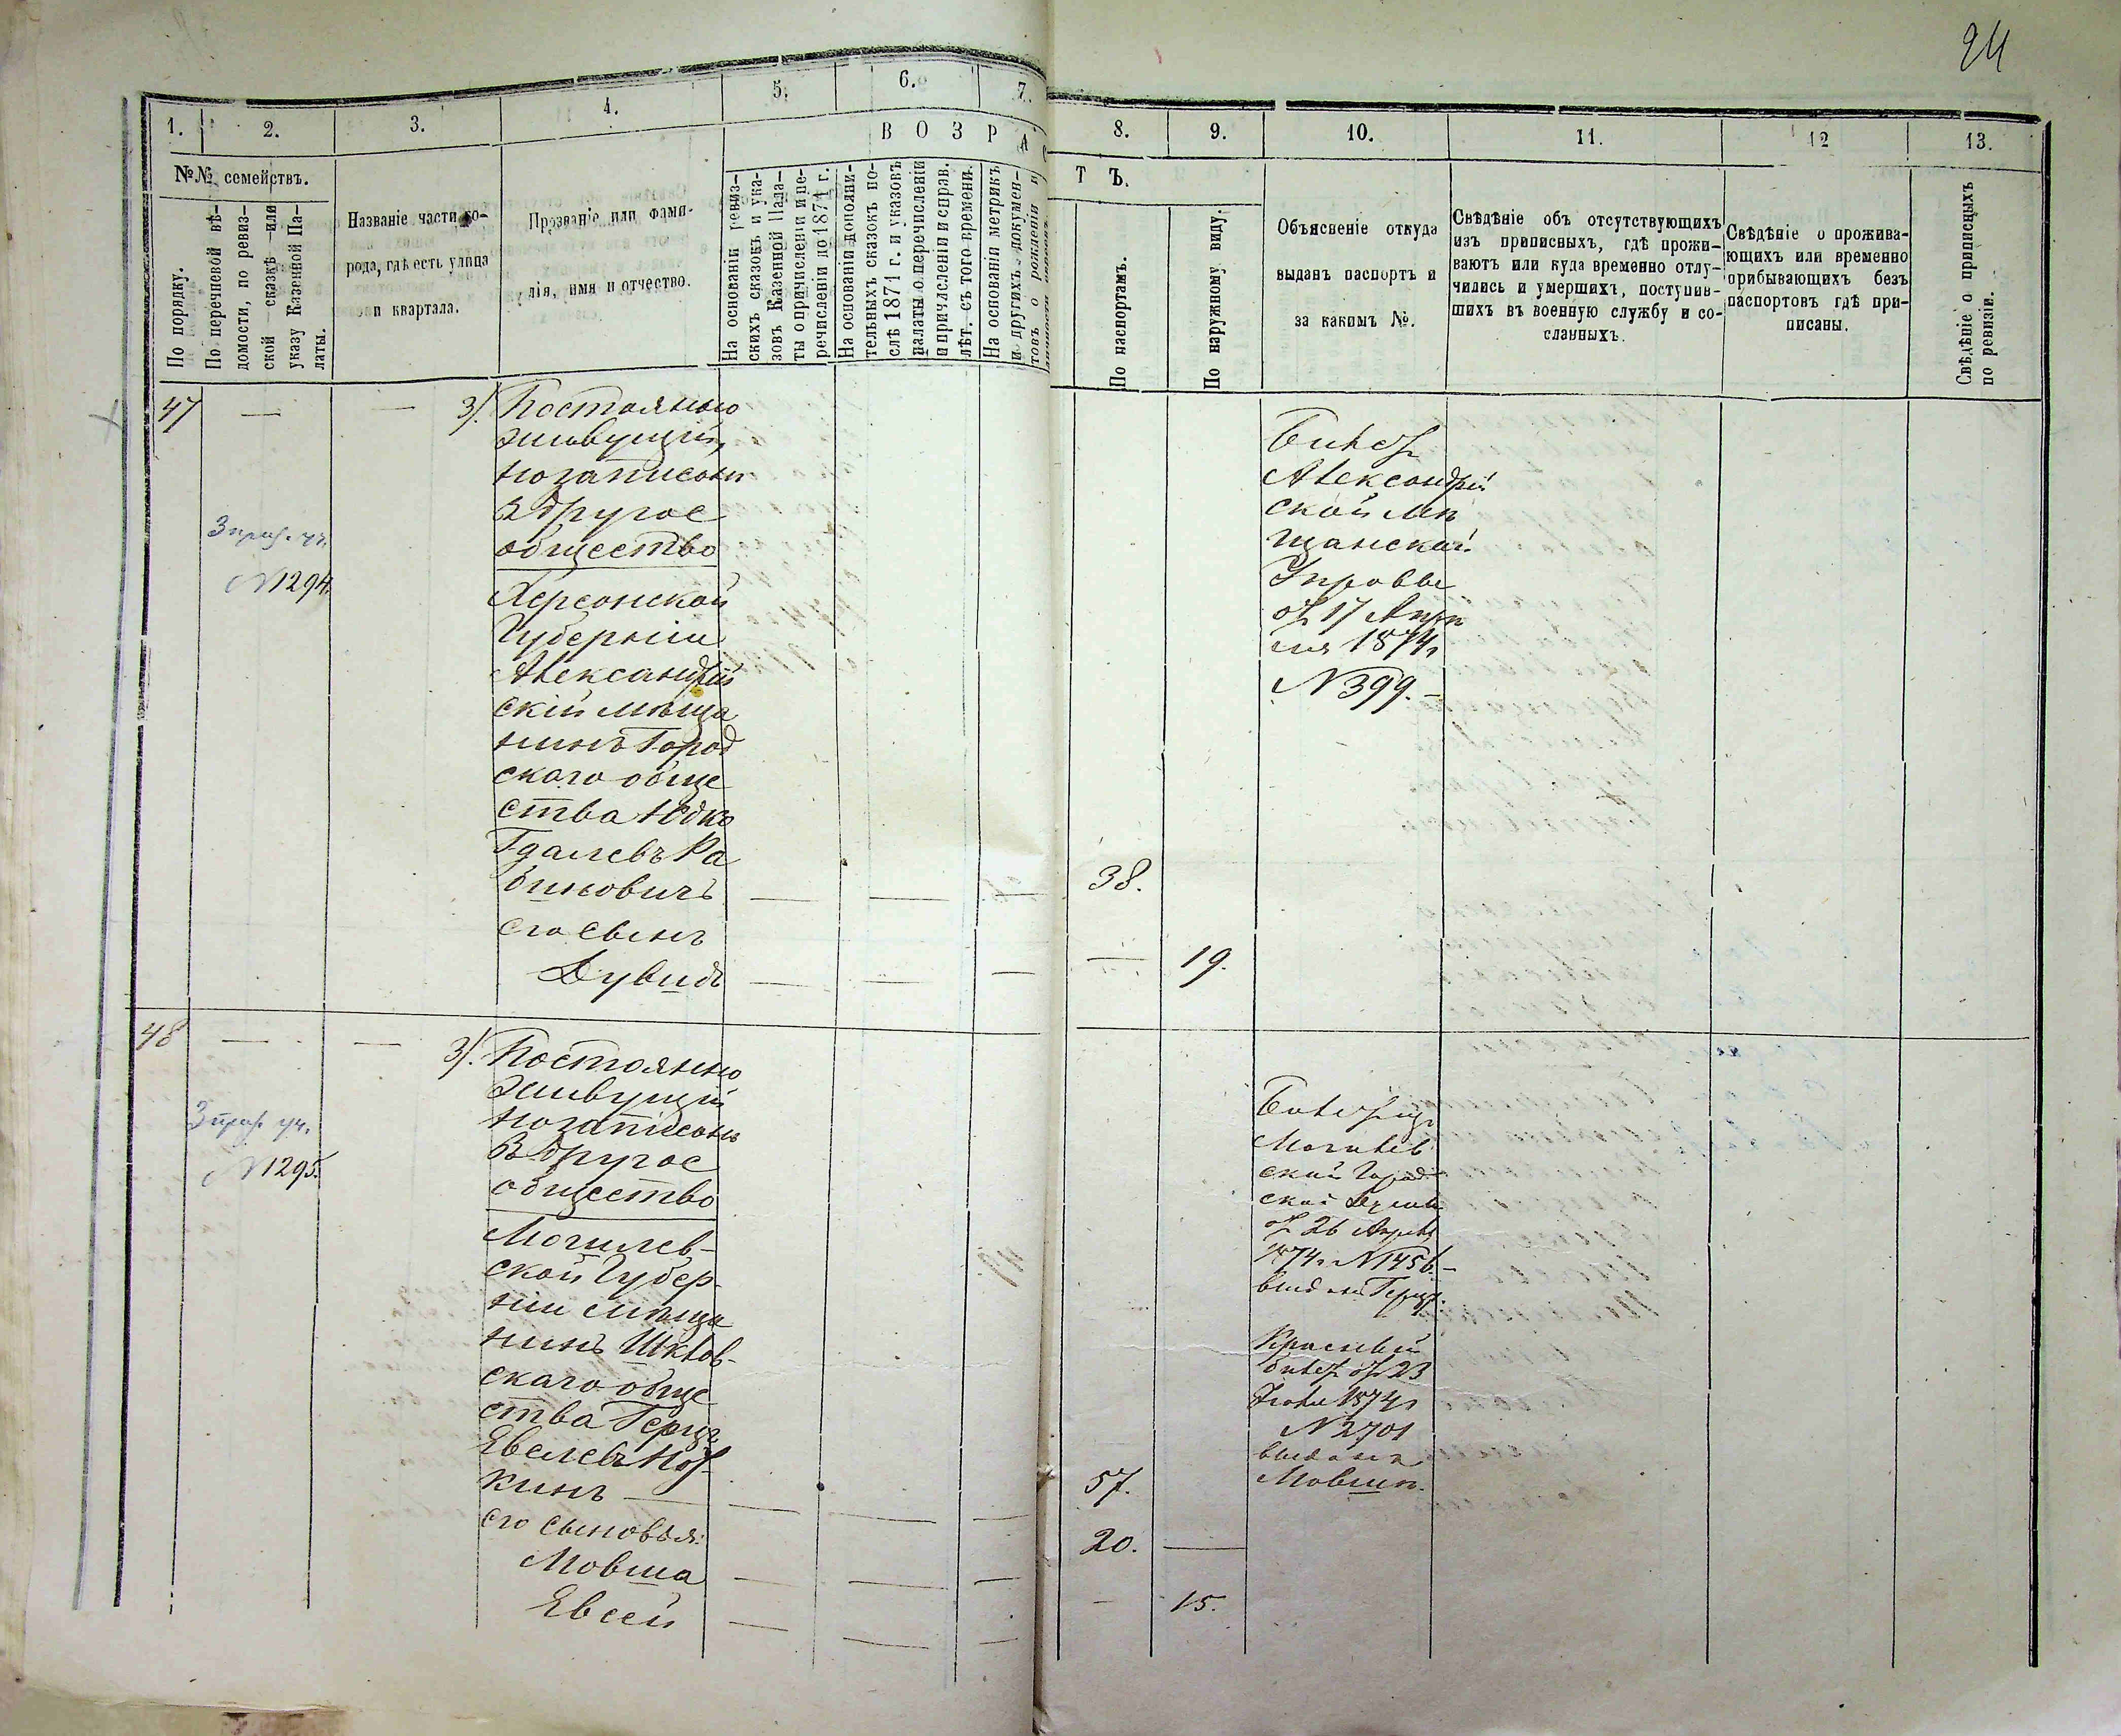 24
1.
2.
3.
4.
5.
6.
7.
8.
9.
10.
11.
12
13.
В О З Р А С
Т Ъ.
№№ семействъ.
По порядку.
По перечневой вѣ-
домости, по ревиз-
ской сказкѣ или
указу Казенной Па-
латы.
Названіе части го-
рода, гдѣ есть улица
и квартала.
Прозваніе или фами-
лія, имя и отчество.
На основаніи ревиз-
скихъ сказокъ и ука-
зовъ Казенной Пала-
ты о причисленіи и пе-
речисленіи до 1871 г.
На основаніи дополни-
тельныхъ сказокъ по-
слѣ 1871 г. и указовъ
палаты о перечисленіи
и причисленіи и справ.
лѣт. съ того времени.
На основаніи метрикъ
и другихъ докумен-
товъ о рожденіи и
По паспортамъ.
По наружному виду.
Объясненіе откуда
выданъ паспортъ и
за какимъ №.
Свѣдѣніе объ отсутствующихъ
изъ приписныхъ, гдѣ прожи-
ваютъ или куда временно отлу-
чились и умершихъ, поступив-
шихъ въ военную службу и со-
сланныхъ.
Свѣдѣніе о прожива-
ющихъ или временно
прибывающихъ безъ
паспортовъ гдѣ при-
писаны.
Свѣдѣніе о приписныхъ
по ревизіи.
47
3 приз. уч.
№ 1294.
3/. Постоянно
живущій,
но записанъ
в другое
общество
Херсонской
Губерніи
Александрій
скій мѣща
нинъ Город
скаго обще
ства
Гдалевъ Ра
биновичъ
его сынъ
Дувидъ
38.
19.
Билетъ
Александрій
ской мѣ
щанской
Управы
отъ 17 Апрѣ
ля 1874 г
№ 399.-
48
3 приз. уч.
№ 1295.
3/. Постоянно
живущій
но записанъ
в другое
общество
Могилев-
ской Губер-
ніи мѣща
нинъ Шклов-
скаго обще
ства Герцъ
Евелевъ
кинъ
его сыновья:
Мовша
Евсей
57.
20.
15.
Могилев
ской Город
ской Думы
отъ 26 Апрѣля
1874 г. № 1456.-
выданъ Герцу.
Красный
билетъ отъ 23
1874 г
№ 2701
выданъ
Мовшѣ.